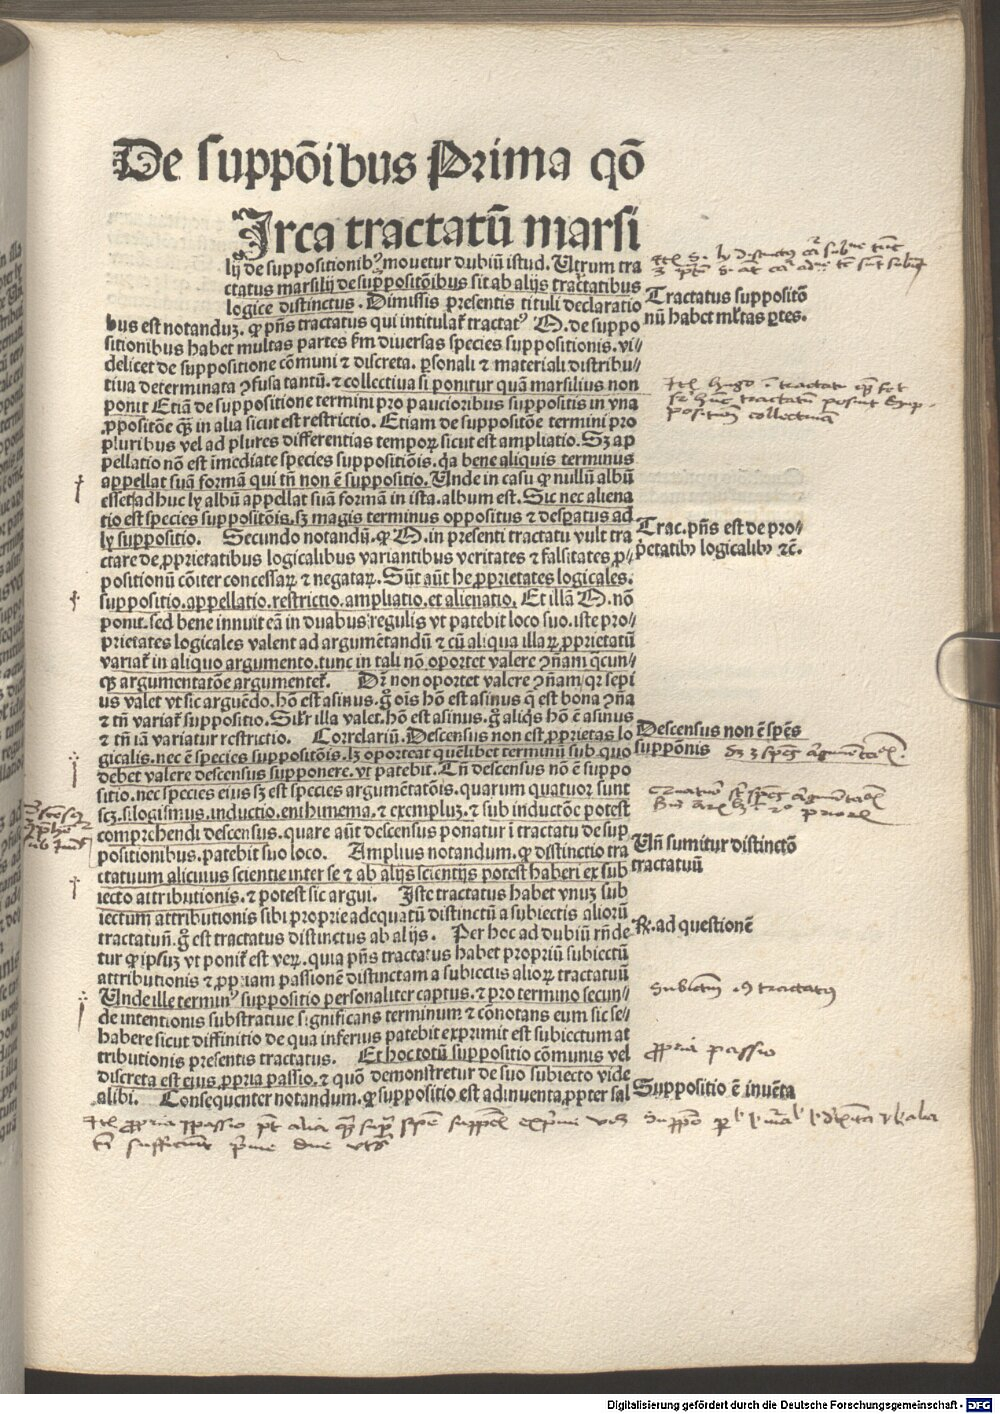 De suppōibus Prima qō
Irca tractatū marsi
lij de suppositionibꝰ mouetur dubiū istud. Utrum tra
ctatus marsilij de suppositōibus sit ab alijs tractatibus
logice distinctus. Dimissis presentis tituli declaratio
bus est notanduz. ꝙ pn̄s tractatus qui intitulat̄ tractatꝰ M. de suppo
sitionibus habet multas partes ẜm diuersas species suppositionis. vi⸗
delicet de suppositione cōmuni ⁊ discreta. ꝑsonali ⁊ materiali distribu⸗
tiua determinata ꝯfusa tantū. ⁊ collectiua si ponitur quā marsilius non
ponit Etiā de suppositione termini pro paucioribus suppositis in vna
ꝓpositōe qꝫ in alia sicut est restrictio. Etiam de suppositōe termini pro
pluribus vel ad plures differentias temporꝝ sicut est ampliatio. Sꝫ ap
pellatio nō est imediate species suppositiōis. qa bene aliquis terminus
appellat suā formā qui tn̄ non ē suppositio. Unde in casu ꝙ nullū albū
esset adhuc ly albū appellat suā formā in ista. album est. Sic nec aliena
tio est species suppositōis. sꝫ magis terminus oppositus ⁊ desꝑatus ad
ly suppositio. Secundo notandū. ꝙ M. in presenti tractatu vult tra
ctare de ꝓprietatibus logicalibus variantibus veritates ⁊ falsitates ꝓ⸗
positionū cōiter concessarꝝ ⁊ negatarꝝ. Sūt aūt he ꝓprietates logicales.
suppositio. appellatio. restrictio. ampliatio. et alienatio. Et illā M. nō
ponit. sed bene innuit eā in duabus regulis vt patebit loco suo. iste pro⸗
prietates logicales valent ad argumētandū ⁊ cū aliqua illarꝝ ꝓprietatū
variat̄ in aliquo argumento. tunc in tali nō oportet valere ꝯn̄am qcun⸗
qꝫ argumentatōe argumentet̄. Dr̄ non oportet valere ꝯn̄am qr sepi
us valet vt sic arguēdo. hō est asinus. g̊ ois hō est asinus q̄ est bona ꝯn̄a
⁊ tn̄ variat̄ suppositio. Silr̄ illa valet. hō est asinus. g̊ aliqͥs hō ē asinus
⁊ tn̄ iā variatur restrictio. Correlariū. Descensus non est ꝓprietas lo
gicalis. nec ē species suppositōis. lꝫ oporteat quēlibet terminū sub quo
debet valere descensus supponere. vt patebit. Tn̄ descensus nō ē suppo
sitio. nec species eius sꝫ est species argumētatōis. quarum quatuor sunt
scꝫ. silogismus. inductio. enthimema. ⁊ exempluꝫ. ⁊ sub inductōe potest
comprehendi descensus. quare aūt descensus ponatur ī tractatu de sup
positionibus. patebit suo loco. Amplius notandum. ꝙ distinctio tra
ctatuum alicuius scientie inter se ⁊ ab alijs scientijs potest haberi ex sub
iecto attributionis. ⁊ potest sic argui. Iste tractatus habet vnuꝫ sub
iectum attributionis sibi proprie adequatū distinctū a subiectis aliorū
tractatuū. g̊ est tractatus distinctus ab alijs. Per hoc ad dubiū rn̄de
tur ꝙ ipsuꝫ vt ponit̄ est verꝝ. quia pn̄s tractatus habet propriū subiectū
attributionis ⁊ ꝓpriam passionē distinctam a subiectis aliorꝝ tractatuū
Unde ille terminꝰ suppositio personaliter captus. ⁊ pro termino secun⸗
de intentionis substratiue significans terminum ⁊ cōnotans eum sic se⸗
habere sicut diffinitio de qua inferius patebit exprimit est subiectum at
tributionis presentis tractatus. Et hoc totū suppositio cōmunis vel
discreta est eius ꝓpria passio. ⁊ quō demonstretur de suo subiecto vide
alibi. Consequenter notandum. ꝙ suppositio est adinuenta ꝓpter sal
Tractatus suppositō
nū habet ml̄tas ꝑtes.
Trac. pn̄s est de pro⸗
pͥetatibꝰ logicalibꝰ ⁊c.
Descensus non ē spēs
suppōnis
Un̄ sumitur distinctō
tractatuū
R̄. ad questionē
ꝓpria passio
Suppositio ē inuēta
Digitalisierung gefördert durch die Deutsche Forschungsgemeinschaft - DFG